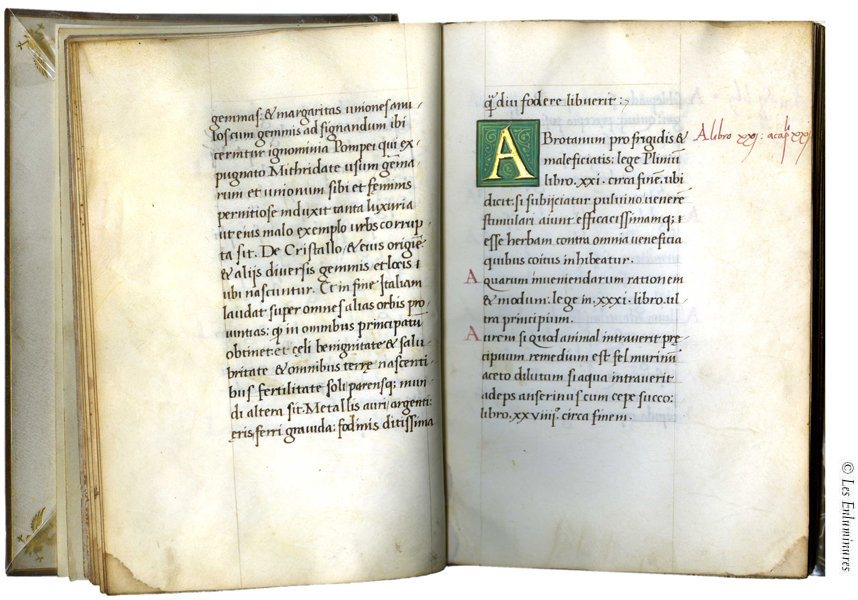 gemmas: & margaritas uniones anu,
loscum gemmis ad signandum ibi
cernitur ignominia Pompei qui ex,
pugnato Mithridate usum gēma,
rum et unionum sibi et feminis
permitiose induxit tanta luxuria
ut eius malo exemplo urbs corrup,
ta sit. De Cristallo, & eius origiē
& alijs diversis gemmis et locis:
ubi nascuntur. Et in fine Italiam
laudat super omnes alias orbis pro,
vintias: q in omnibus principatū
obtinet: et celi benignitate & salu,
britate & omnibus terre nascenti,
bus fertilitate soli parensq; mun,
di altera sit. Metallis auri, argenti:
eris, ferri gravida: fodinis ditissima
q̄ diu fodere libuerit:,
ABrotanum pro frigidis &
maleficiatis: lege Pliniū
libro. xxi. circa finē. ubi
dicit: si subijciatur pulvino venerē
stimulari aiunt efficacissimamq;
esse herbam contra omnia veneficia
quibus coitus inhibeatur.
Aquarum inveniendarum rationem
& modum: lege in. xxxi. libro. ul,
tra principium.
Aurem si quod animal intraverit prę,
cipuum remedium est fel murinū
aceto dilutum si aqua intraverit
adeps anserinus cum cepe succo:
libro. xxviiij. circa finem.
A libro xxj:
© Les Enluminures